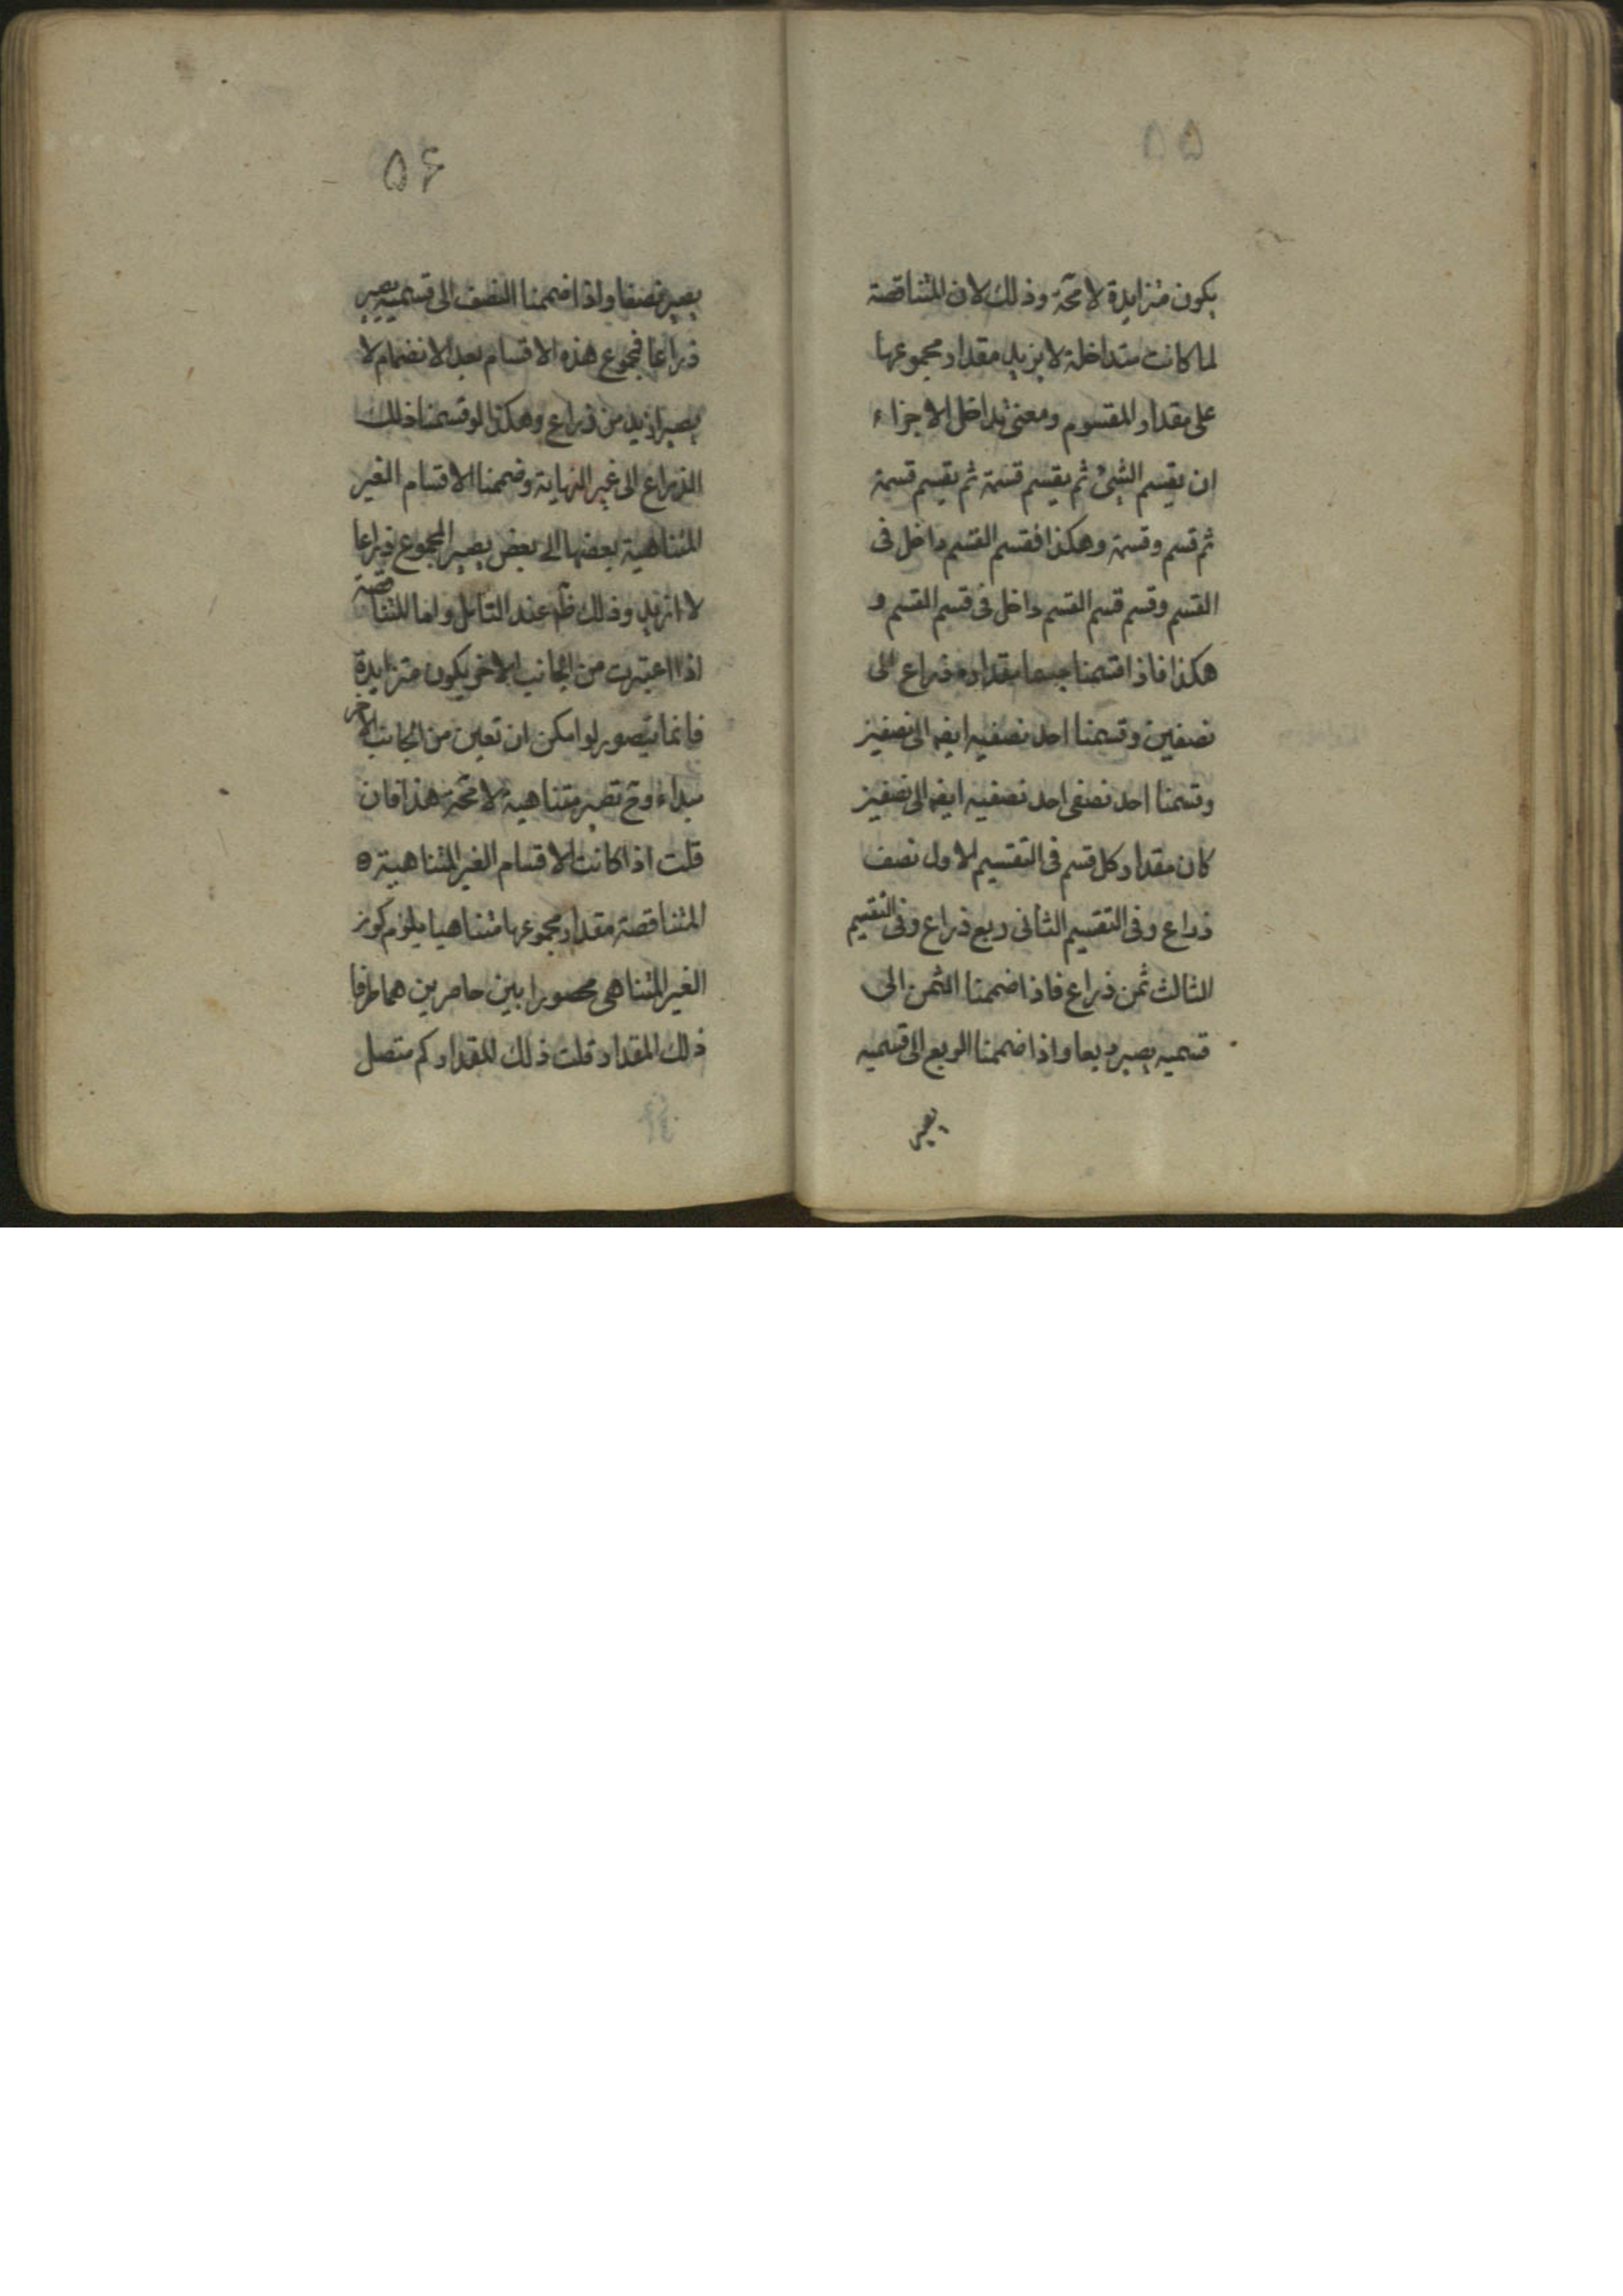 ۵۵
يكون متزايدة لا محة وذلك لان المتناقصة
لما كانت متداخلة لا يزيد مقدار مجموعها
على مقدار المقسوم ومعنى تداخل الاجزاء
ان يقسم الشيئ ثم يقسم قسمة ثم يقسم قسمة
ثم قسم وقسمة وهكذا فقسم القسم داخل فى
القسم وقسم قسم القسم داخل فى قسم القسم و
هكذا فاذا قسمنا جسما مقداره ذراع الى
نصفين وقسمنا احد نصفيه ايضا الى نصفين
وقسمنا احد نصفى احد نصفيه ايضا الى نصفين
كان مقدار كل قسم فى التقسيم الاول نصف
ذراع وفى التقسيم الثانى ربع ذراع وفى التقسيم
الثالث ثمن ذراع فاذا ضممنا الثمن الى
قسميه يصير ربعا واذا ضممنا الربع الى قسميه
يصير
۵۶
يصير نصفا واذا ضممنا النصف الى قسميه يصير
ذراعا فمجموع هذه الاقسام بعد الانضمام لا
يصير ازيد من ذراع وهكذا لو قسمنا ذلك
الذراع الى غير النهاية وضممنا الاقسام الغير
المتناهية بعضها الى بعض يصير المجموع ذراعا
لا ازيد وذلك ظ عند التامل واما المتناقصة
اذا اعتبرت من الجانب الاخر يكون متزايدة
فانما يتصور لو امكن ان تعين من الجانب الاخر
مبداء وح تصير متناهية لا محة هذا فان
قلت اذا كانت الاقسام الغير المتناهية
المتناقصة مقدار مجموعها متناهيا يلزم كون
الغير المتناهى محصورا بين حاصرين هما طرفا
ذلك المقدار قلت ذلك المقدار كم متصل